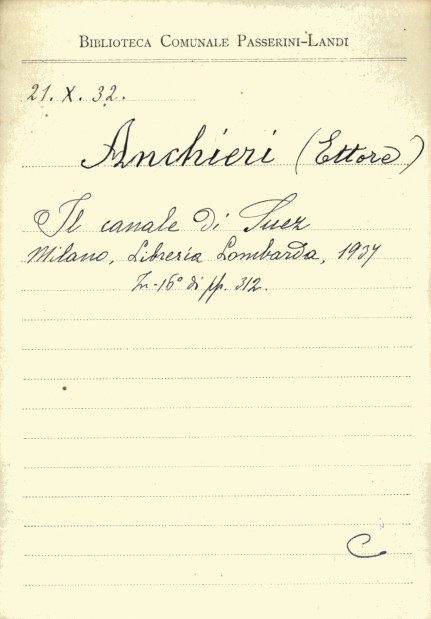 BIBLIOTECA COMUNALE PASSERINI-LANDI
21. X. 32.
Anchieri (Ettore)
Il canale di Suez
Milano, Libreria Lombarda, 1937
In-16° di pp. 312.
C